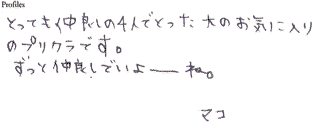 Profilex
とっても仲良しの4人でとった大のお気に入り
のプリクラです。
ずっと仲良しでいよーね。
マコ